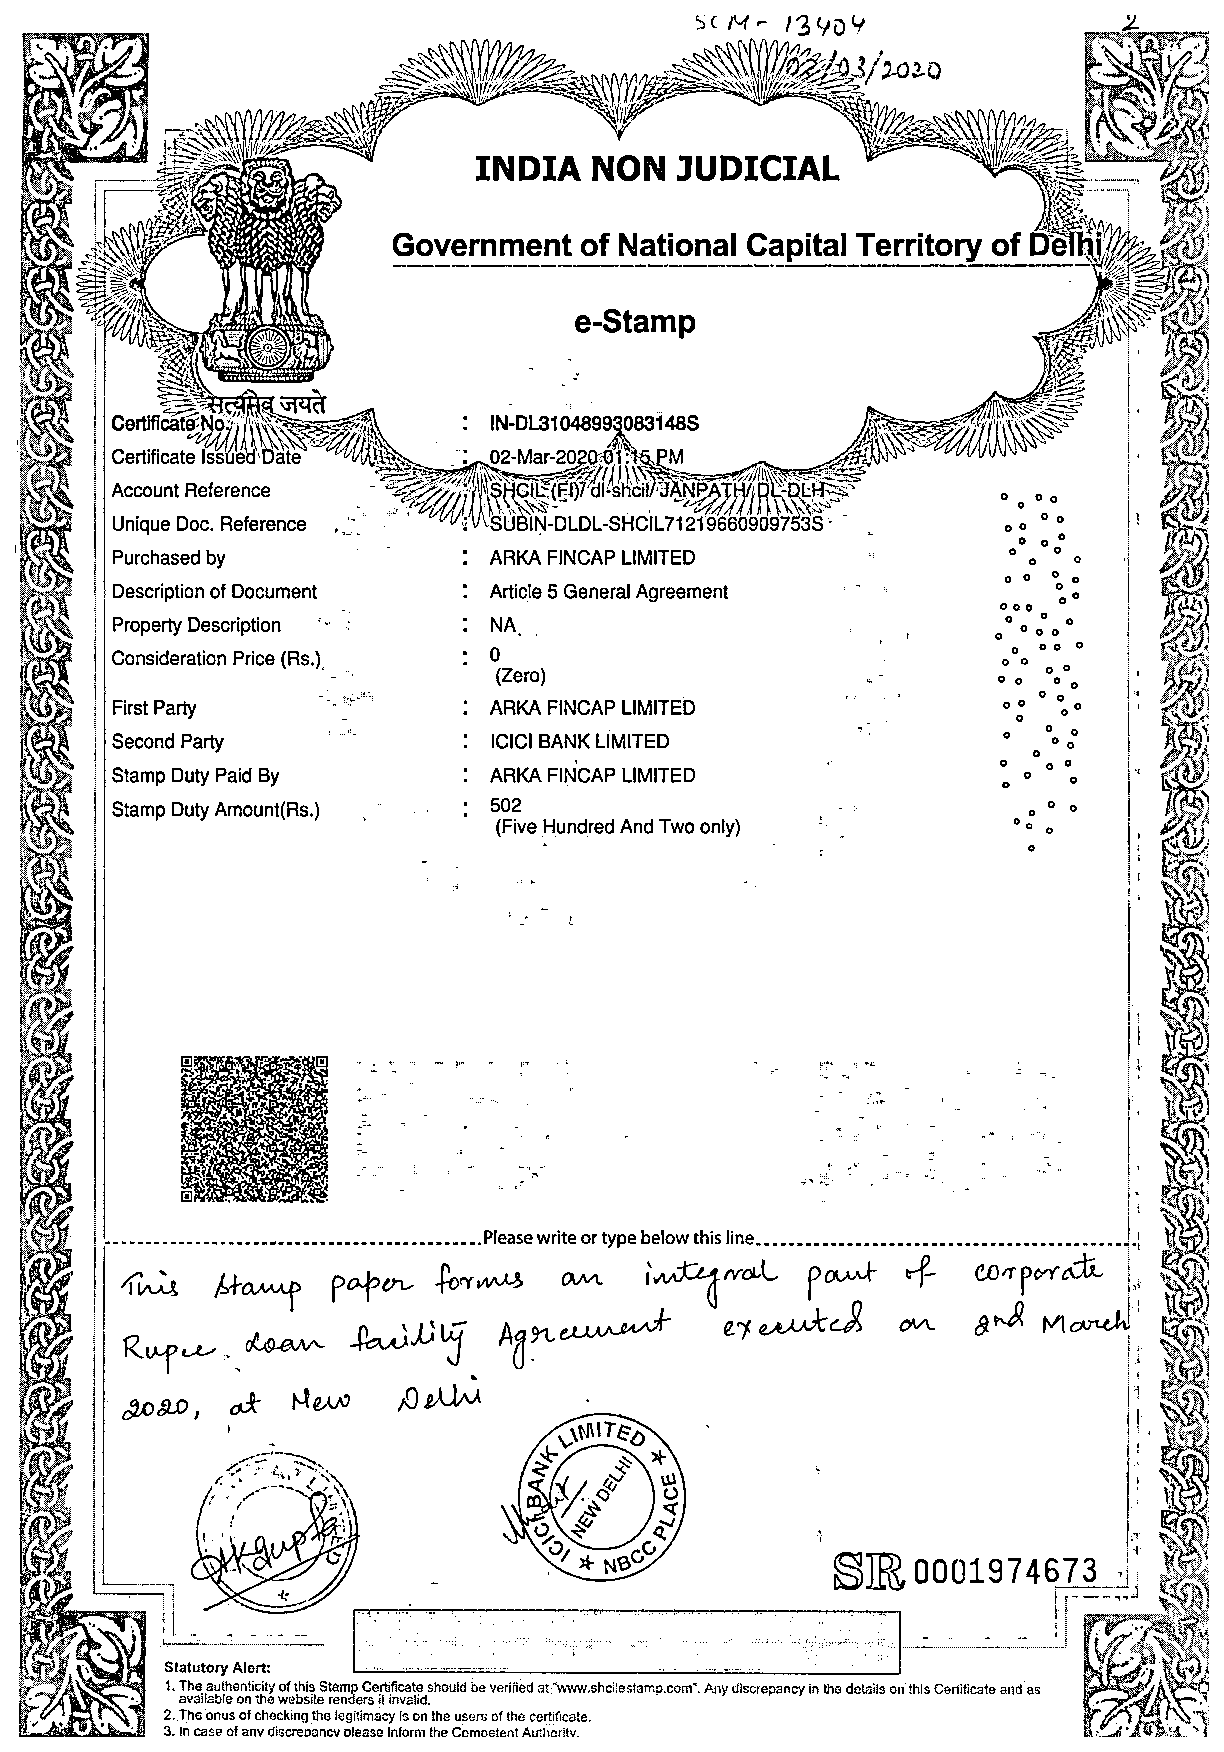 SCM - 13404
2
02/03/2020
INDIA NON JUDICIAL
Government of National Capital Territory of Delhi
e-Stamp
सत्यमेव जयते
Certificate No. : IN-DL31048993083148S
Certificate Issued Date : 02-Mar-2020 01:15 PM
Account Reference : SHCIL (FI)/ dl-shcil/ JANPATH/ DL-DLH
Unique Doc. Reference : SUBIN-DLDL-SHCIL71219660909753S
Purchased by : ARKA FINCAP LIMITED
Description of Document : Article 5 General Agreement
Property Description : NA
Consideration Price (Rs.) : 0
(Zero)
First Party : ARKA FINCAP LIMITED
Second Party : ICICI BANK LIMITED
Stamp Duty Paid By : ARKA FINCAP LIMITED
Stamp Duty Amount(Rs.) : 502
(Five Hundred And Two only)
Please write or type below this line
This stamp paper formes an integral part of corporate
Rupee Loan facility Agreement executed on 2nd March
2020, at New Delhi
ICICI BANK LIMITED ★ NBCC PLACE ★
NEW DELHI
SR 0001974673
Statutory Alert:
1. The authenticity of this Stamp Certificate should be verified at "www.shcilestamp.com". Any discrepancy in the details on this Certificate and as
available on the website renders it invalid.
2. The onus of checking the legitimacy is on the users of the certificate.
3. In case of any discrepancy please inform the Competent Authority.